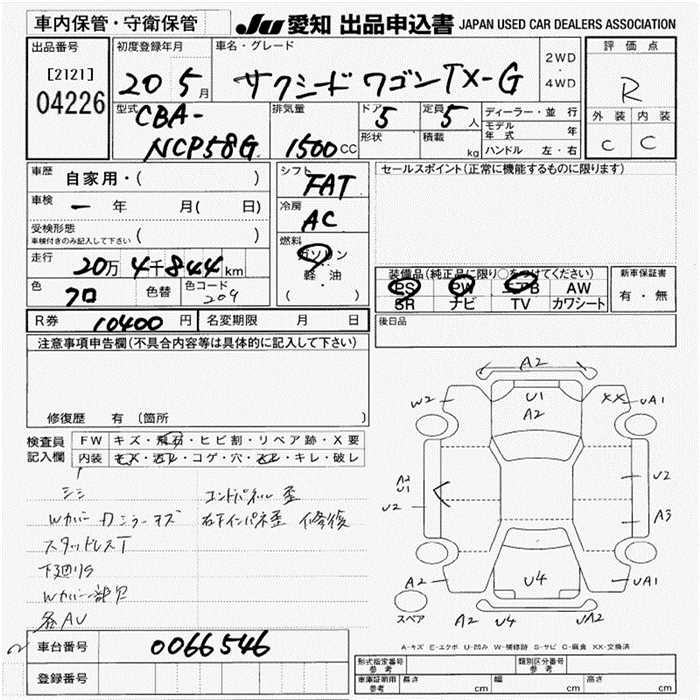 車内保管・守衛保管
JU 愛知 出品申込書 JAPAN USED CAR DEALERS ASSOCIATION
出品番号
[2121]
04226
初度登録年月
20 5月
車名・グレード
サクシードワゴンTX-G
2WD
・
4WD
評価点
R
外装 内装
C C
型式
CBA-
NCP58G
排気量
1500 CC
ドア 5
形状
定員 5人
積載 kg
ディーラー・並行
モデル年式 年
ハンドル 左・右
車歴
自家用・( )
車検
一 年 月(日)
受検形態
車検付きのみ記入して下さい ( )
走行
20万4千844km
色
クロ
色替
色コード
209
シフト
FAT
冷房
AC
燃料
ガソリン
・
軽油
( ・ )
セールスポイント(正常に機能するものに限ります)
装備品(純正品に限り○をつけてください)
PS PW エアB AW
SR ナビ TV カワシート
新車保証書
有・無
R券 10400円
名変期限 月 日
後日品
注意事項申告欄(不具合内容等は具体的に記入して下さい)
修復歴 有(箇所
検査員
記入欄
FW キズ・飛石・ヒビ割・リペア跡・X要
内装 キズ・汚れ・コゲ・穴・スレ・キレ・破レ
シミ
Wカバー
スタッドレスT
下廻りS
Wカバー一部欠
各AU
エンドパネル歪
右下インパネ歪 修復
A2
U1
A2
W2
XX
UA1
A2
U1
U2
U2
A3
A2
U4
UA1
スペア
A2
U4
UA2
A-キズ E-エクボ U-凹み W-補修跡 S-サビ C-腐食 XX-交換済
車台番号
0066546
登録番号
形式指定番号
参考
類別区分番号
参考
車庫証明用
参考
長さ cm
幅 cm
高さ cm